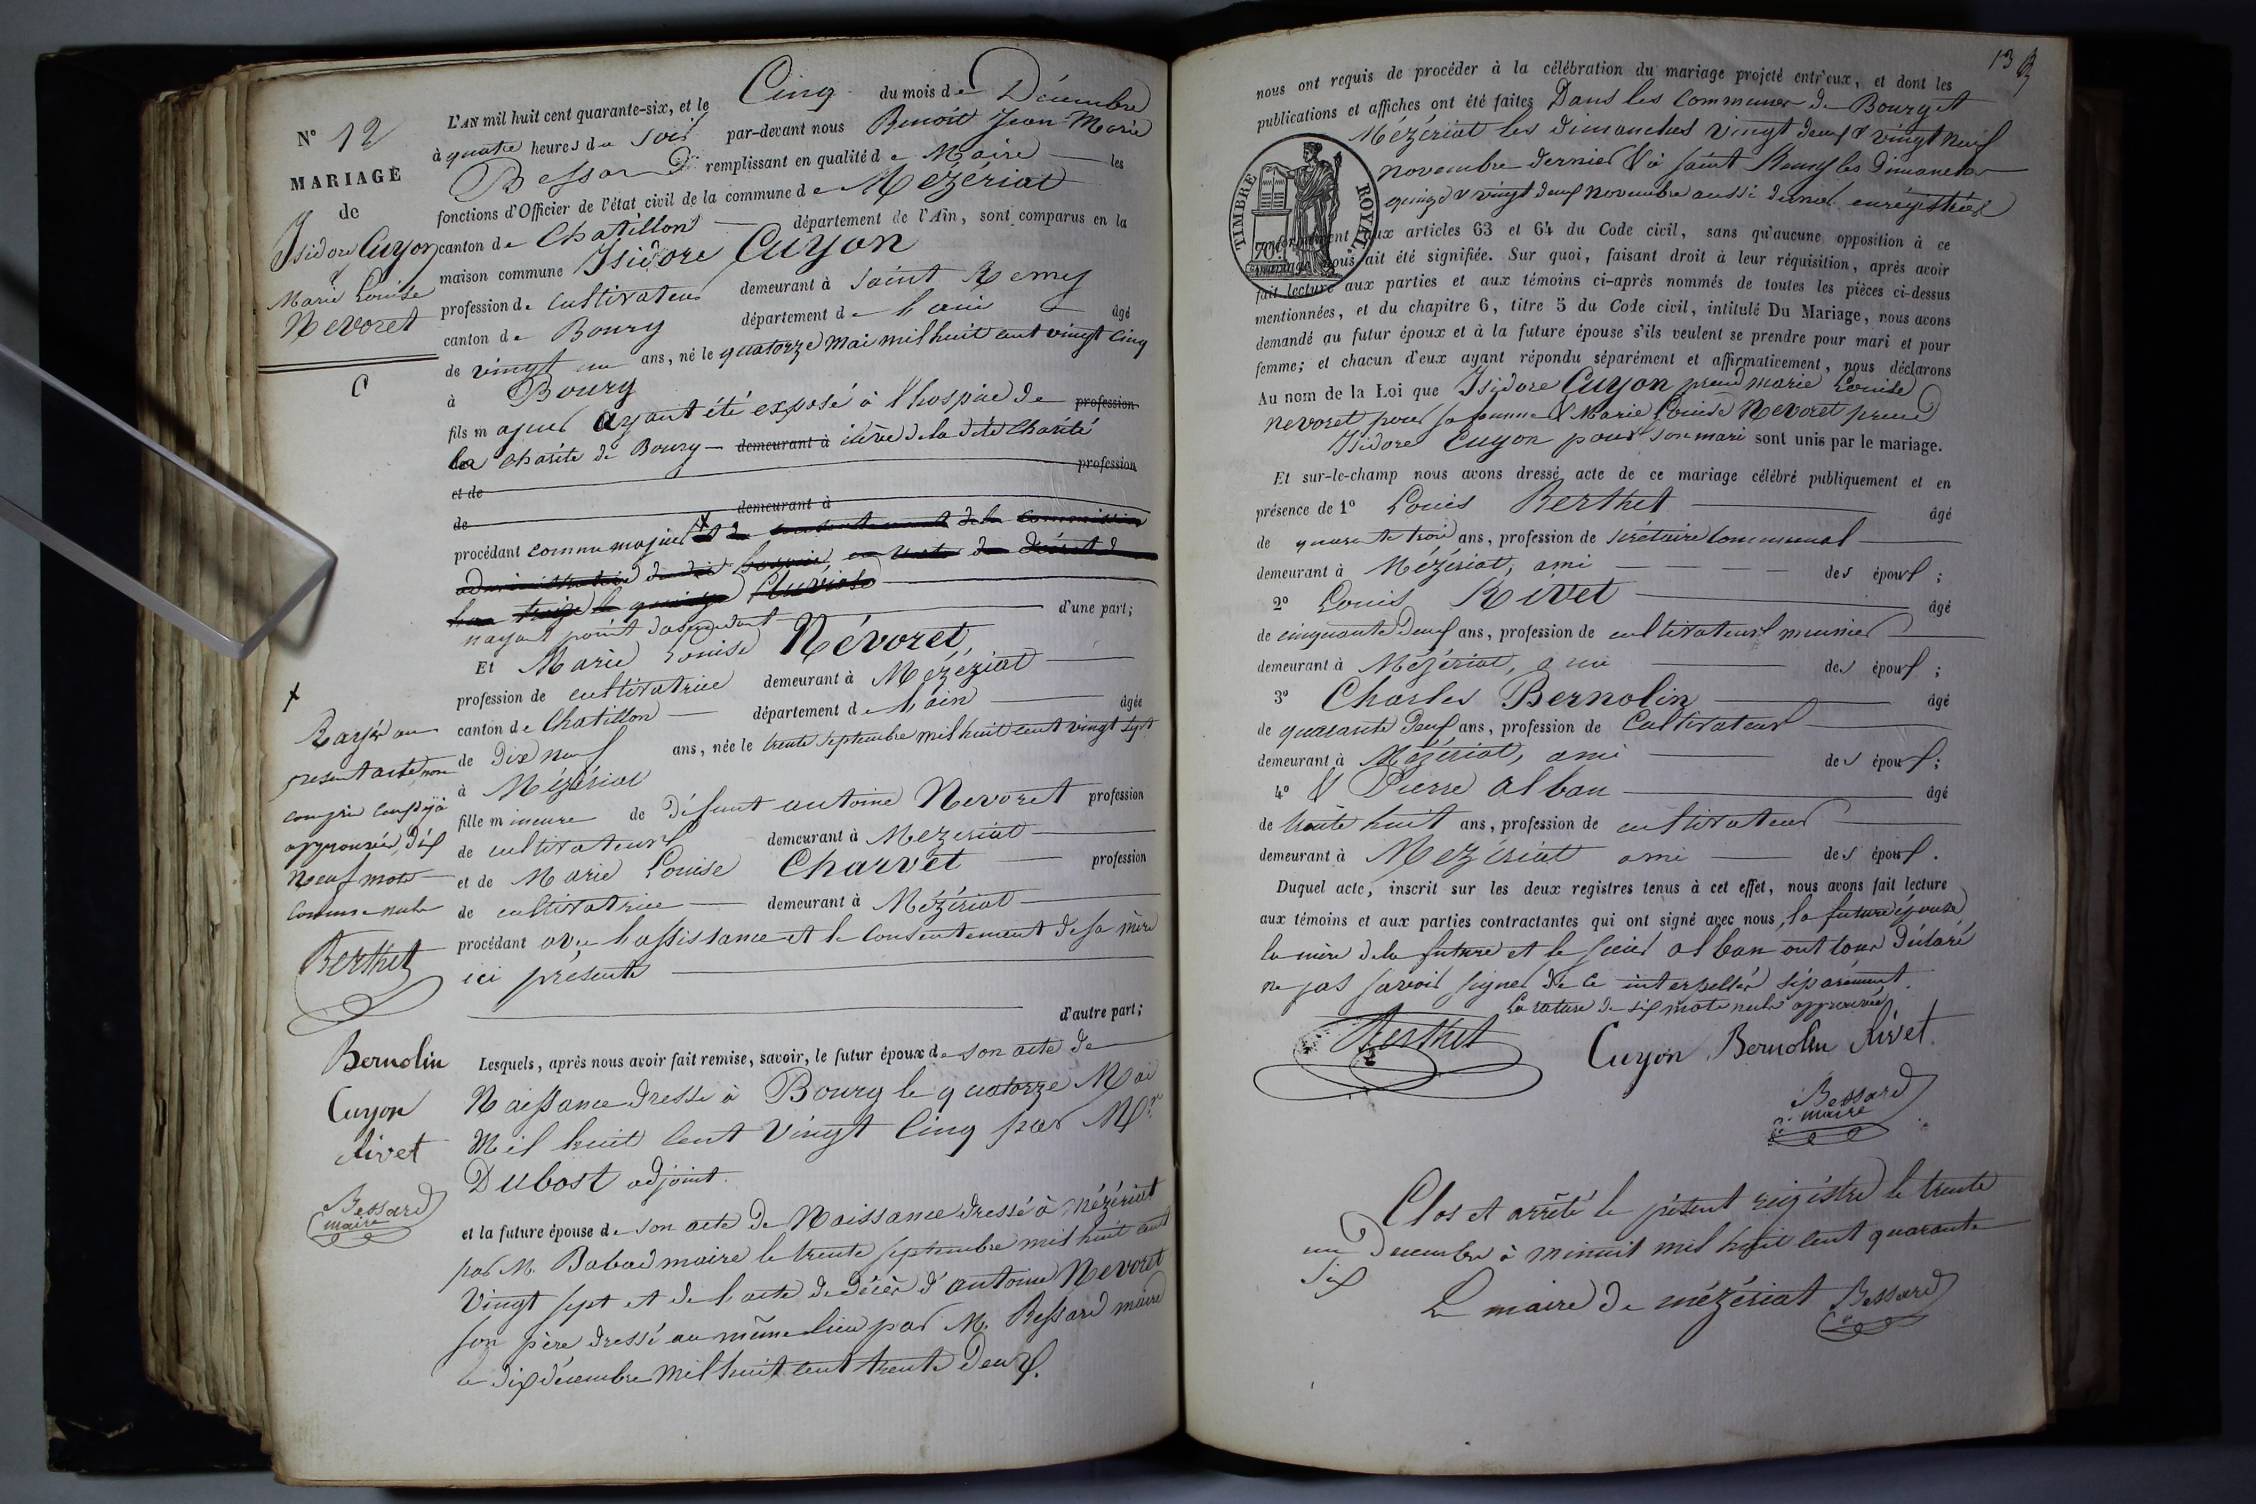 N° 12
MARIAGE
de
Isidore Cuyon
&
Marie Louise
Nevoret
C
L'AN mil huit cent quarante-six, et le Cinq du mois de Décembre
à quatre heures du soir par-devant nous Benoit Jean Marie
Bessard remplissant en qualité de Maire les
fonctions d'Officier de l'état civil de la commune de Mézériat
canton de Chatillon département de l'Ain, sont comparus en la
maison commune Isidore Cuyon
profession de cultivateur demeurant à Saint Remy
canton de Bourg département de l'ain âgé
de vingt un ans, né le quatorze Mai mil huit cent vingt cinq
à Bourg
fils majeur ayant été exposé à l'hospice de profession
la charité de Bourg demeurant à élève de la dite charité
et de profession
de demeurant à
procédant comme majeur X et du consentement de la commission
administrative dudit hospice, en vertu du décret de
l'an treize le quinze Pluviose
n'ayant point d'ascendant d'une part;
Et Marie Louise Névoret,
profession de cultivatrice demeurant à Mézériat
canton de Chatillon département de l'ain âgée
de dix neuf ans, née le trente septembre mil huit cent vingt sept
à Mézériat
fille mineure de défunt antoine Nevoret profession
de cultivateur demeurant à Mezeriat
et de Marie Louise Charvet profession
de cultivatrice demeurant à Mézériat
procédant avec l'assistance et le consentement de sa mère
ici présente
d'autre part;
Lesquels, après nous avoir fait remise, savoir, le futur époux de son acte de
Naissance dressé à Bourg le quatorze Mai
Mil huit cent vingt cinq par Mr
Dubost adjoint.
et la future épouse de son acte de Naissance dressé à Mézériat
par M. Babad maire le trente septembre mil huit cent
vingt sept et de l'acte de décès d'antoine Nevoret
son père dressé au même lieu par M. Bessard maire
le dix décembre mil huit cent trente deux.
X
Rayé au
présent acte, non
compris ceux déjà
approuvés, dix
neuf mots
comme nuls
Berthet
Bernolin
Cuyon
Rivet
Bessard
maire
13
nous ont requis de procéder à la célébration du mariage projeté entr'eux, et dont les
publications et affiches ont été faites Dans les communes de Bourg et
Mézériat les dimanches vingt deux & vingt neuf
novembre dernier & à saint Remy les dimanches
quinze & vingt deux novembre aussi dernier enrégistrées
TIMBRE ROYAL
70c.
conformément aux articles 63 et 64 du Code civil, sans qu'aucune opposition à ce
mariage nous ait été signifiée. Sur quoi, faisant droit à leur réquisition, après avoir
fait lecture aux parties et aux témoins ci-après nommés de toutes les pièces ci-dessus
mentionnées, et du chapitre 6, titre 5 du Code civil, intitulé Du Mariage, nous avons
demandé au futur époux et à la future épouse s'ils veulent se prendre pour mari et pour
femme; et chacun d'eux ayant répondu séparément et affirmativement, nous déclarons
Au nom de la Loi que Isidore Cuyon prend marie Louise
nevoret pour sa femme & Marie Louise Nevoret prend
Isidore Cuyon pour son mari sont unis par le mariage.
Et sur-le-champ nous avons dressé acte de ce mariage célébré publiquement et en
présence de 1° Louis Berthet âgé
de quarante trois ans, profession de sécrétaire communal
demeurant à Mézériat, ami des époux;
2° Louis Rivet âgé
de cinquante deux ans, profession de cultivateur & meunier
demeurant à Mézériat, ami des époux;
3° Charles Bernolin âgé
de quarante deux ans, profession de Cultivateur
demeurant à Mézériat, ami des époux;
4° & Pierre alban âgé
de trente huit ans, profession de cultivateur
demeurant à Mézériat ami des époux.
Duquel acte, inscrit sur les deux registres tenus à cet effet, nous avons fait lecture
aux témoins et aux parties contractantes qui ont signé avec nous, la future épouse
la mère de la future et le sieur alban ont tous déclaré
ne pas savoir signer de ce interpellés séparément.
La rature de six mots nuls approuvée
Berthet Cuyon Bernolin Rivet.
Bessard
maire
Clos et arrêté le présent régistre le trente
un Décembre à minuit mil huit cent quarante
six
Le maire de mézériat Bessard